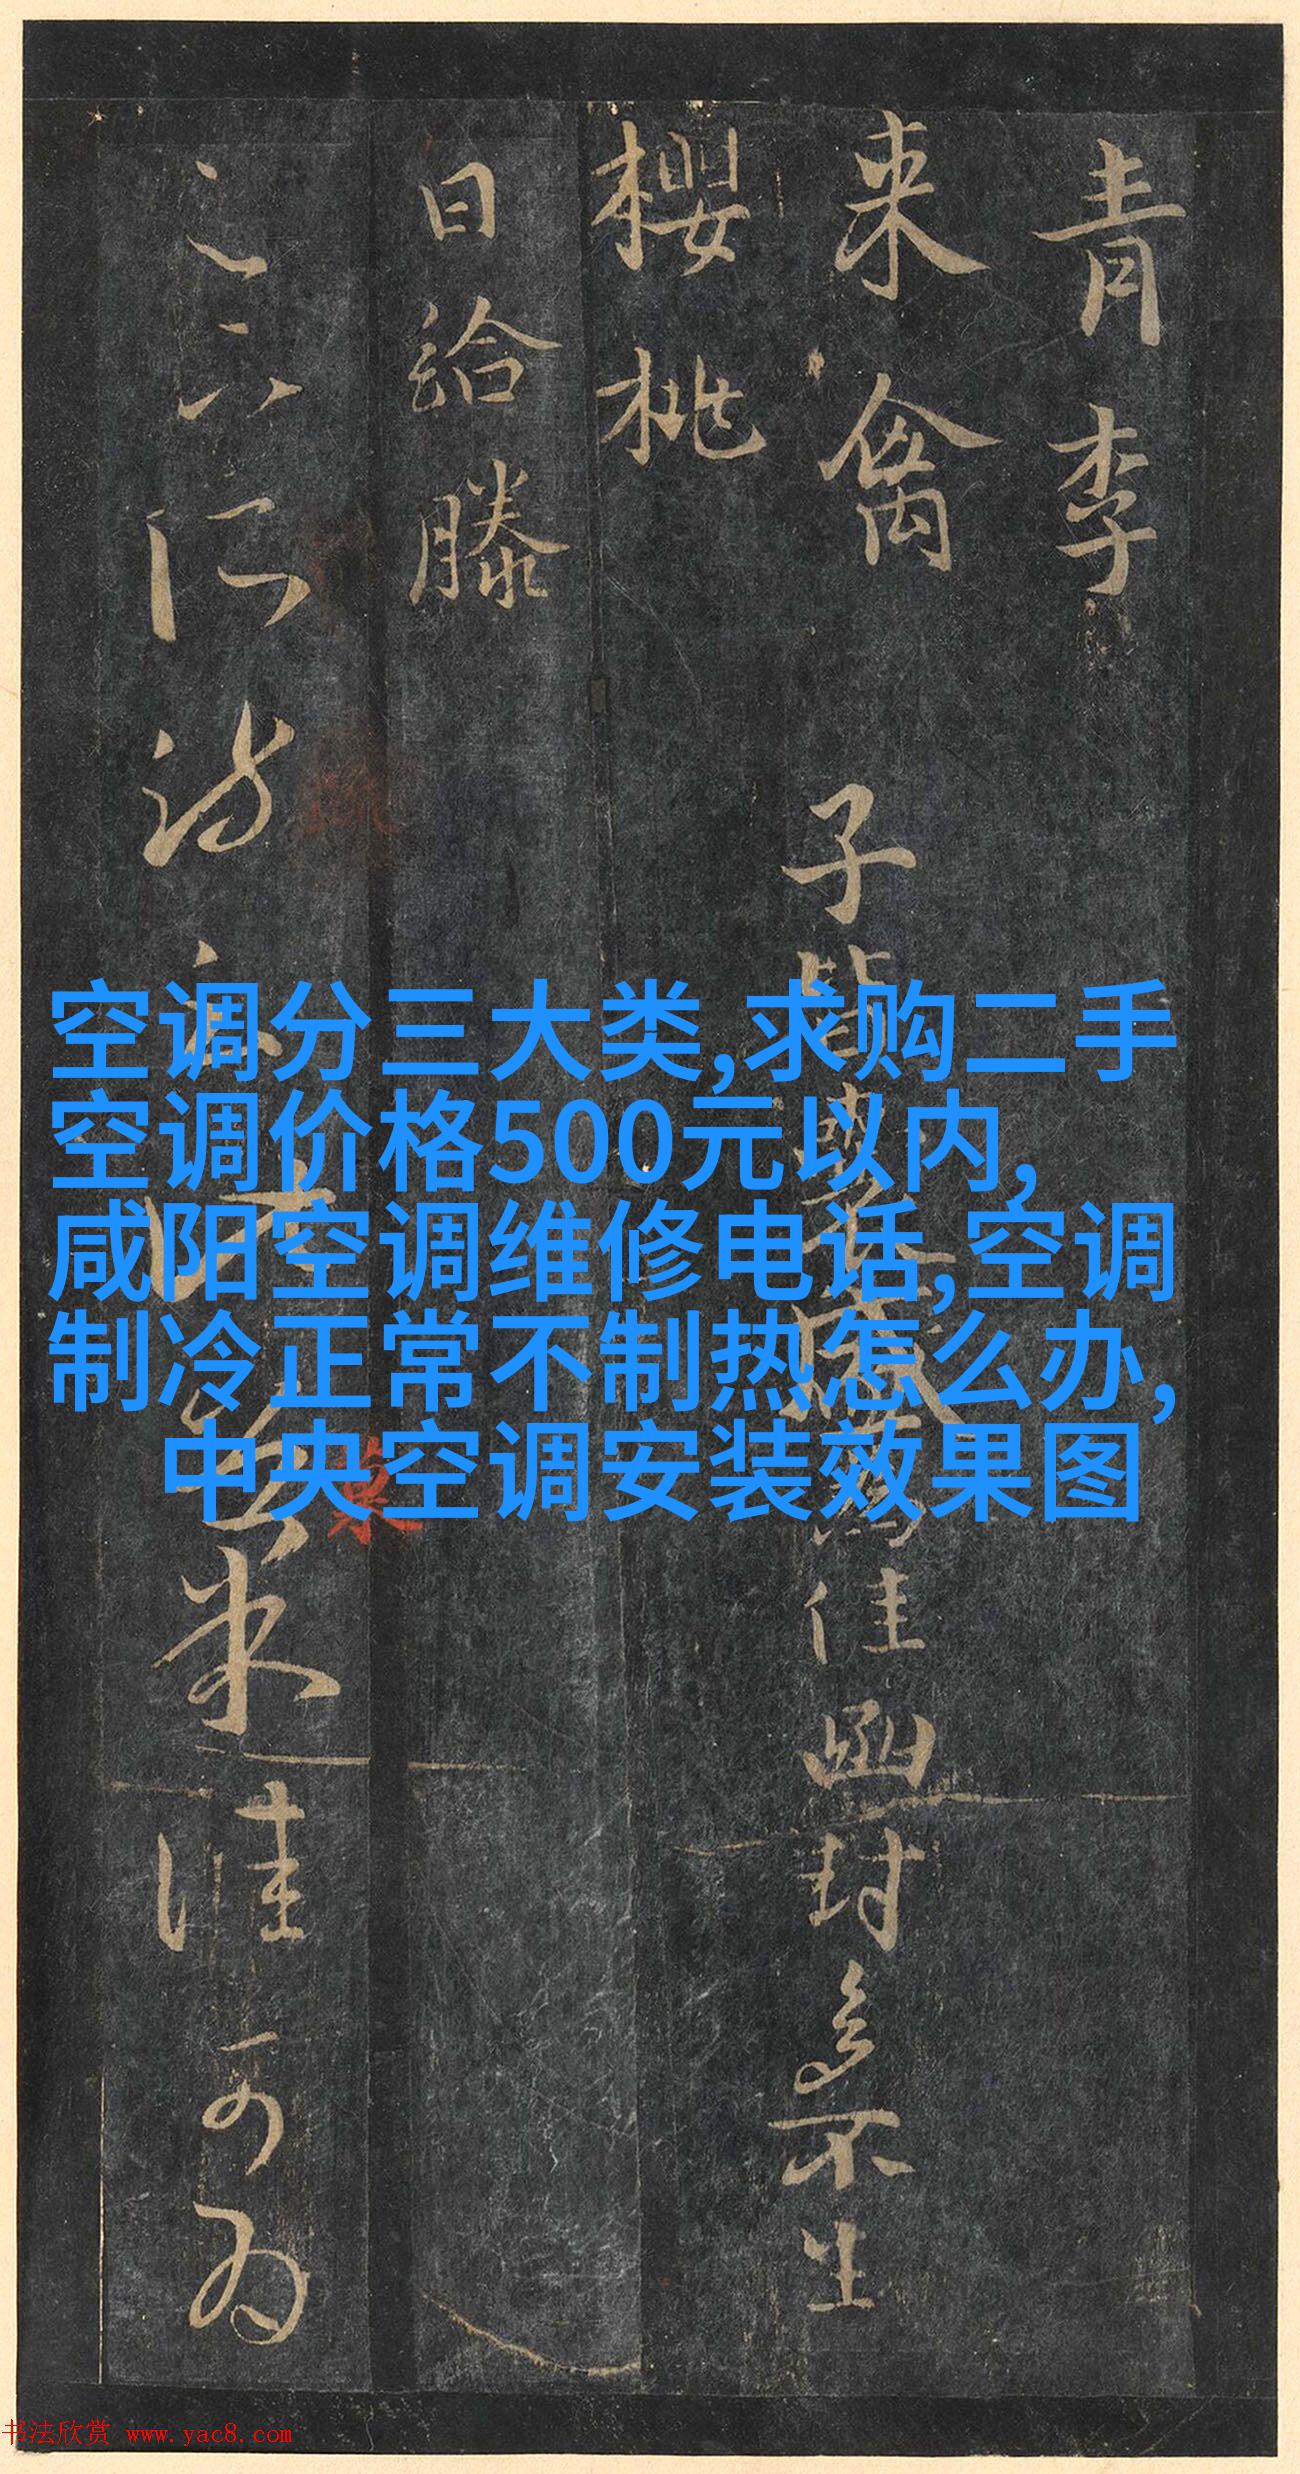 青李
来禽
櫻桃
日給滕
子皆囊盛為佳函封多不生
空调分三大类,求购二手
空调价格500元以内,
咸阳空调维修电话,空调
制冷正常不制热怎么办,
中央空调安装效果图
书法欣赏 www.yac8.com